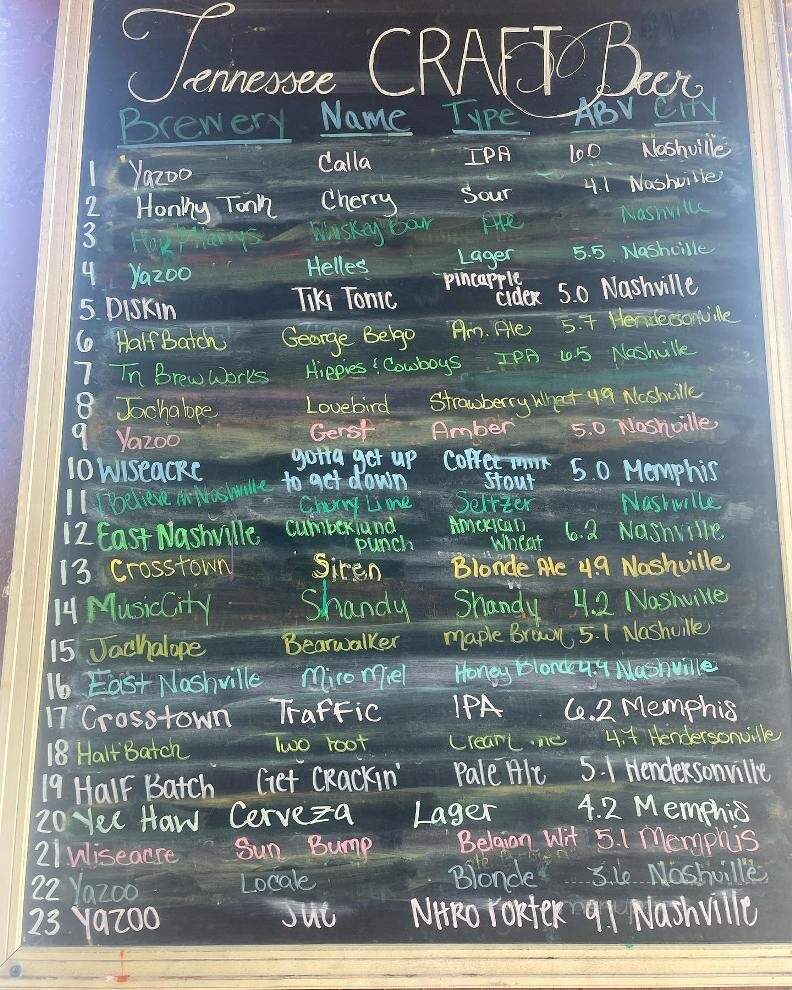 Tennessee CRAFT Beer
Brewery Name Type ABV City
1 Yazoo Calla IPA 6.0 Nashville
2 Honky Tonk Cherry Sour 4.1 Nashville
3. Harry's Whiskey Bar Ale Nashville
4 Yazoo Helles Lager 5.5 Nashville
5. DISKIN Tiki Tonic pineapple cider 5.0 Nashville
6 Half Batch George Belgo Am. Ale 5.7 Hendersonville
7 Tn Brew Works Hippies & Cowboys IPA 6.5 Nashville
8 Jackalope Lovebird Strawberry Wheat 4.9 Nashville
9 Yazoo Gerst Amber 5.0 Nashville
10 WISEACRE gotta get up to get down Coffee milk Stout 5.0 Memphis
11 I Believe in Nashville Cherry Lime Seltzer Nashville
12 East Nashville Cumberland punch American Wheat 6.2 Nashville
13 Crosstown Siren Blonde Ale 4.9 Nashville
14 Music City Shandy Shandy 4.2 Nashville
15 Jackalope Bearwalker maple Brown 5.1 Nashville
16 East Nashville Miro Miel Honey Blonde 4.9 Nashville
17 Crosstown Traffic IPA 6.2 Memphis
18 Half Batch Two Foot Cream 4.7 Hendersonville
19 Half Batch Get Crackin' Pale Ale 5.1 Hendersonville
20 Yee Haw Cerveza Lager 4.2 Memphis
21 Wiseacre Sun Bump Belgian Wit 5.1 Memphis
22 Yazoo Locale Blonde 3.6 Nashville
23 Yazoo Sue Nitro Porter 9.1 Nashville